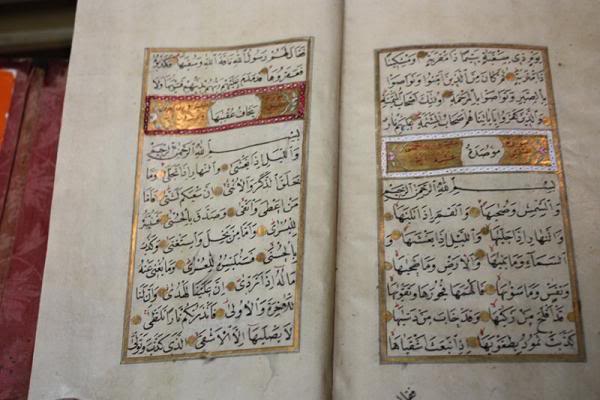 يَوْمٍ ذِي مَسْغَبَةٍ يَتِيمًا ذَا مَقْرَبَةٍ اَوْ مِسْكِينًا
ذَا مَتْرَبَةٍ ثُمَّ كَانَ مِنَ الَّذِينَ اٰمَنُوا وَتَوَاصَوْا
بِالصَّبْرِ وَتَوَاصَوْا بِالْمَرْحَمَةِ اُولٰئِكَ اَصْحَابُ الْمَيْمَنَةِ
وَالَّذِينَ كَفَرُوا بِاٰيَاتِنَا هُمْ اَصْحَابُ الْمَشْئَمَةِ عَلَيْهِمْ نَارٌ
مُؤْصَدَةٌ
بِسْمِ اللّٰهِ الرَّحْمٰنِ الرَّحِيمِ
وَالشَّمْسِ وَضُحٰيهَا وَالْقَمَرِ اِذَا تَلٰيهَا
وَالنَّهَارِ اِذَا جَلّٰيهَا وَالَّيْلِ اِذَا يَغْشٰيهَا وَ
السَّمَاءِ وَمَا بَنٰيهَا وَالْاَرْضِ وَمَا طَحٰيهَا
وَنَفْسٍ وَمَا سَوّٰيهَا فَاَلْهَمَهَا فُجُورَهَا وَتَقْوٰيهَا
قَدْ اَفْلَحَ مَنْ زَكّٰيهَا وَقَدْ خَابَ مَنْ دَسّٰيهَا
كَذَّبَتْ ثَمُودُ بِطَغْوٰيهَا اِذِ انْبَعَثَ اَشْقٰيهَا
فقال
فَقَالَ لَهُمْ رَسُولُ اللّٰهِ نَاقَةَ اللّٰهِ وَسُقْيٰيهَا فَكَذَّبُوهُ
فَعَقَرُوهَا فَدَمْدَمَ عَلَيْهِمْ رَبُّهُمْ بِذَنْبِهِمْ فَسَوّٰيهَا وَلَا
يَخَافُ عُقْبٰيهَا
بِسْمِ اللّٰهِ الرَّحْمٰنِ الرَّحِيمِ
وَالَّيْلِ اِذَا يَغْشٰى وَالنَّهَارِ اِذَا تَجَلّٰى وَمَا
خَلَقَ الذَّكَرَ وَالْاُنْثٰى اِنَّ سَعْيَكُمْ لَشَتّٰى فَاَمَّا
مَنْ اَعْطٰى وَاتَّقٰى وَصَدَّقَ بِالْحُسْنٰى فَسَنُيَسِّرُهُ
لِلْيُسْرٰى وَاَمَّا مَنْ بَخِلَ وَاسْتَغْنٰى وَكَذَّبَ
بِالْحُسْنٰى فَسَنُيَسِّرُهُ لِلْعُسْرٰى وَمَا يُغْنِي عَنْهُ
مَالُهُ اِذَا تَرَدّٰى اِنَّ عَلَيْنَا لَلْهُدٰى وَاِنَّ لَنَا
لَلْاٰخِرَةَ وَالْاُولٰى فَاَنْذَرْتُكُمْ نَارًا تَلَظّٰى
لَا يَصْلٰيهَا اِلَّا الْاَشْقٰى الَّذِي كَذَّبَ وَتَوَلّٰى